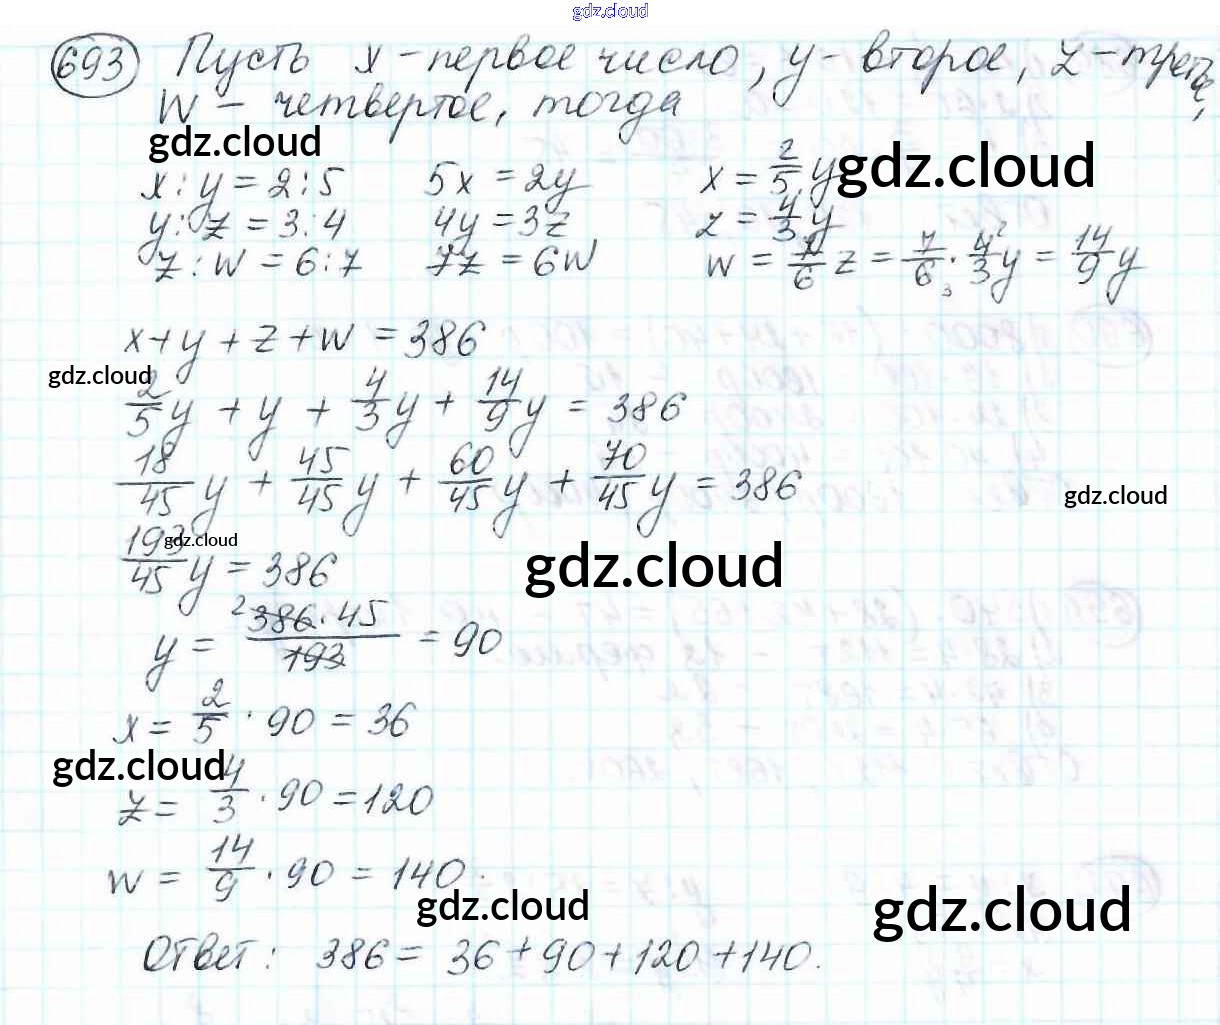 gdz.cloud
693 Пусть x - первое число, y - второе, z - третье,
w - четвертое, тогда
gdz.cloud
gdz.cloud
x : y = 2 : 5 5x = 2y x = 2/5 y
y : z = 3 : 4 4y = 3z z = 4/3 y
z : w = 6 : 7 7z = 6w w = 7/6 z = 7/6 3 · 4/3 2 y = 14/9 y
x + y + z + w = 386
gdz.cloud
2/5 y + y + 4/3 y + 14/9 y = 386
18/45 y + 45/45 y + 60/45 y + 70/45 y = 386
gdz.cloud
gdz.cloud
193/45 y = 386
gdz.cloud
y = 2 386 · 45 / 193 = 90
x = 2/5 · 90 = 36
gdz.cloud
z = 4/3 · 90 = 120
w = 14/9 · 90 = 140.
gdz.cloud
gdz.cloud
Ответ: 386 = 36 + 90 + 120 + 140.